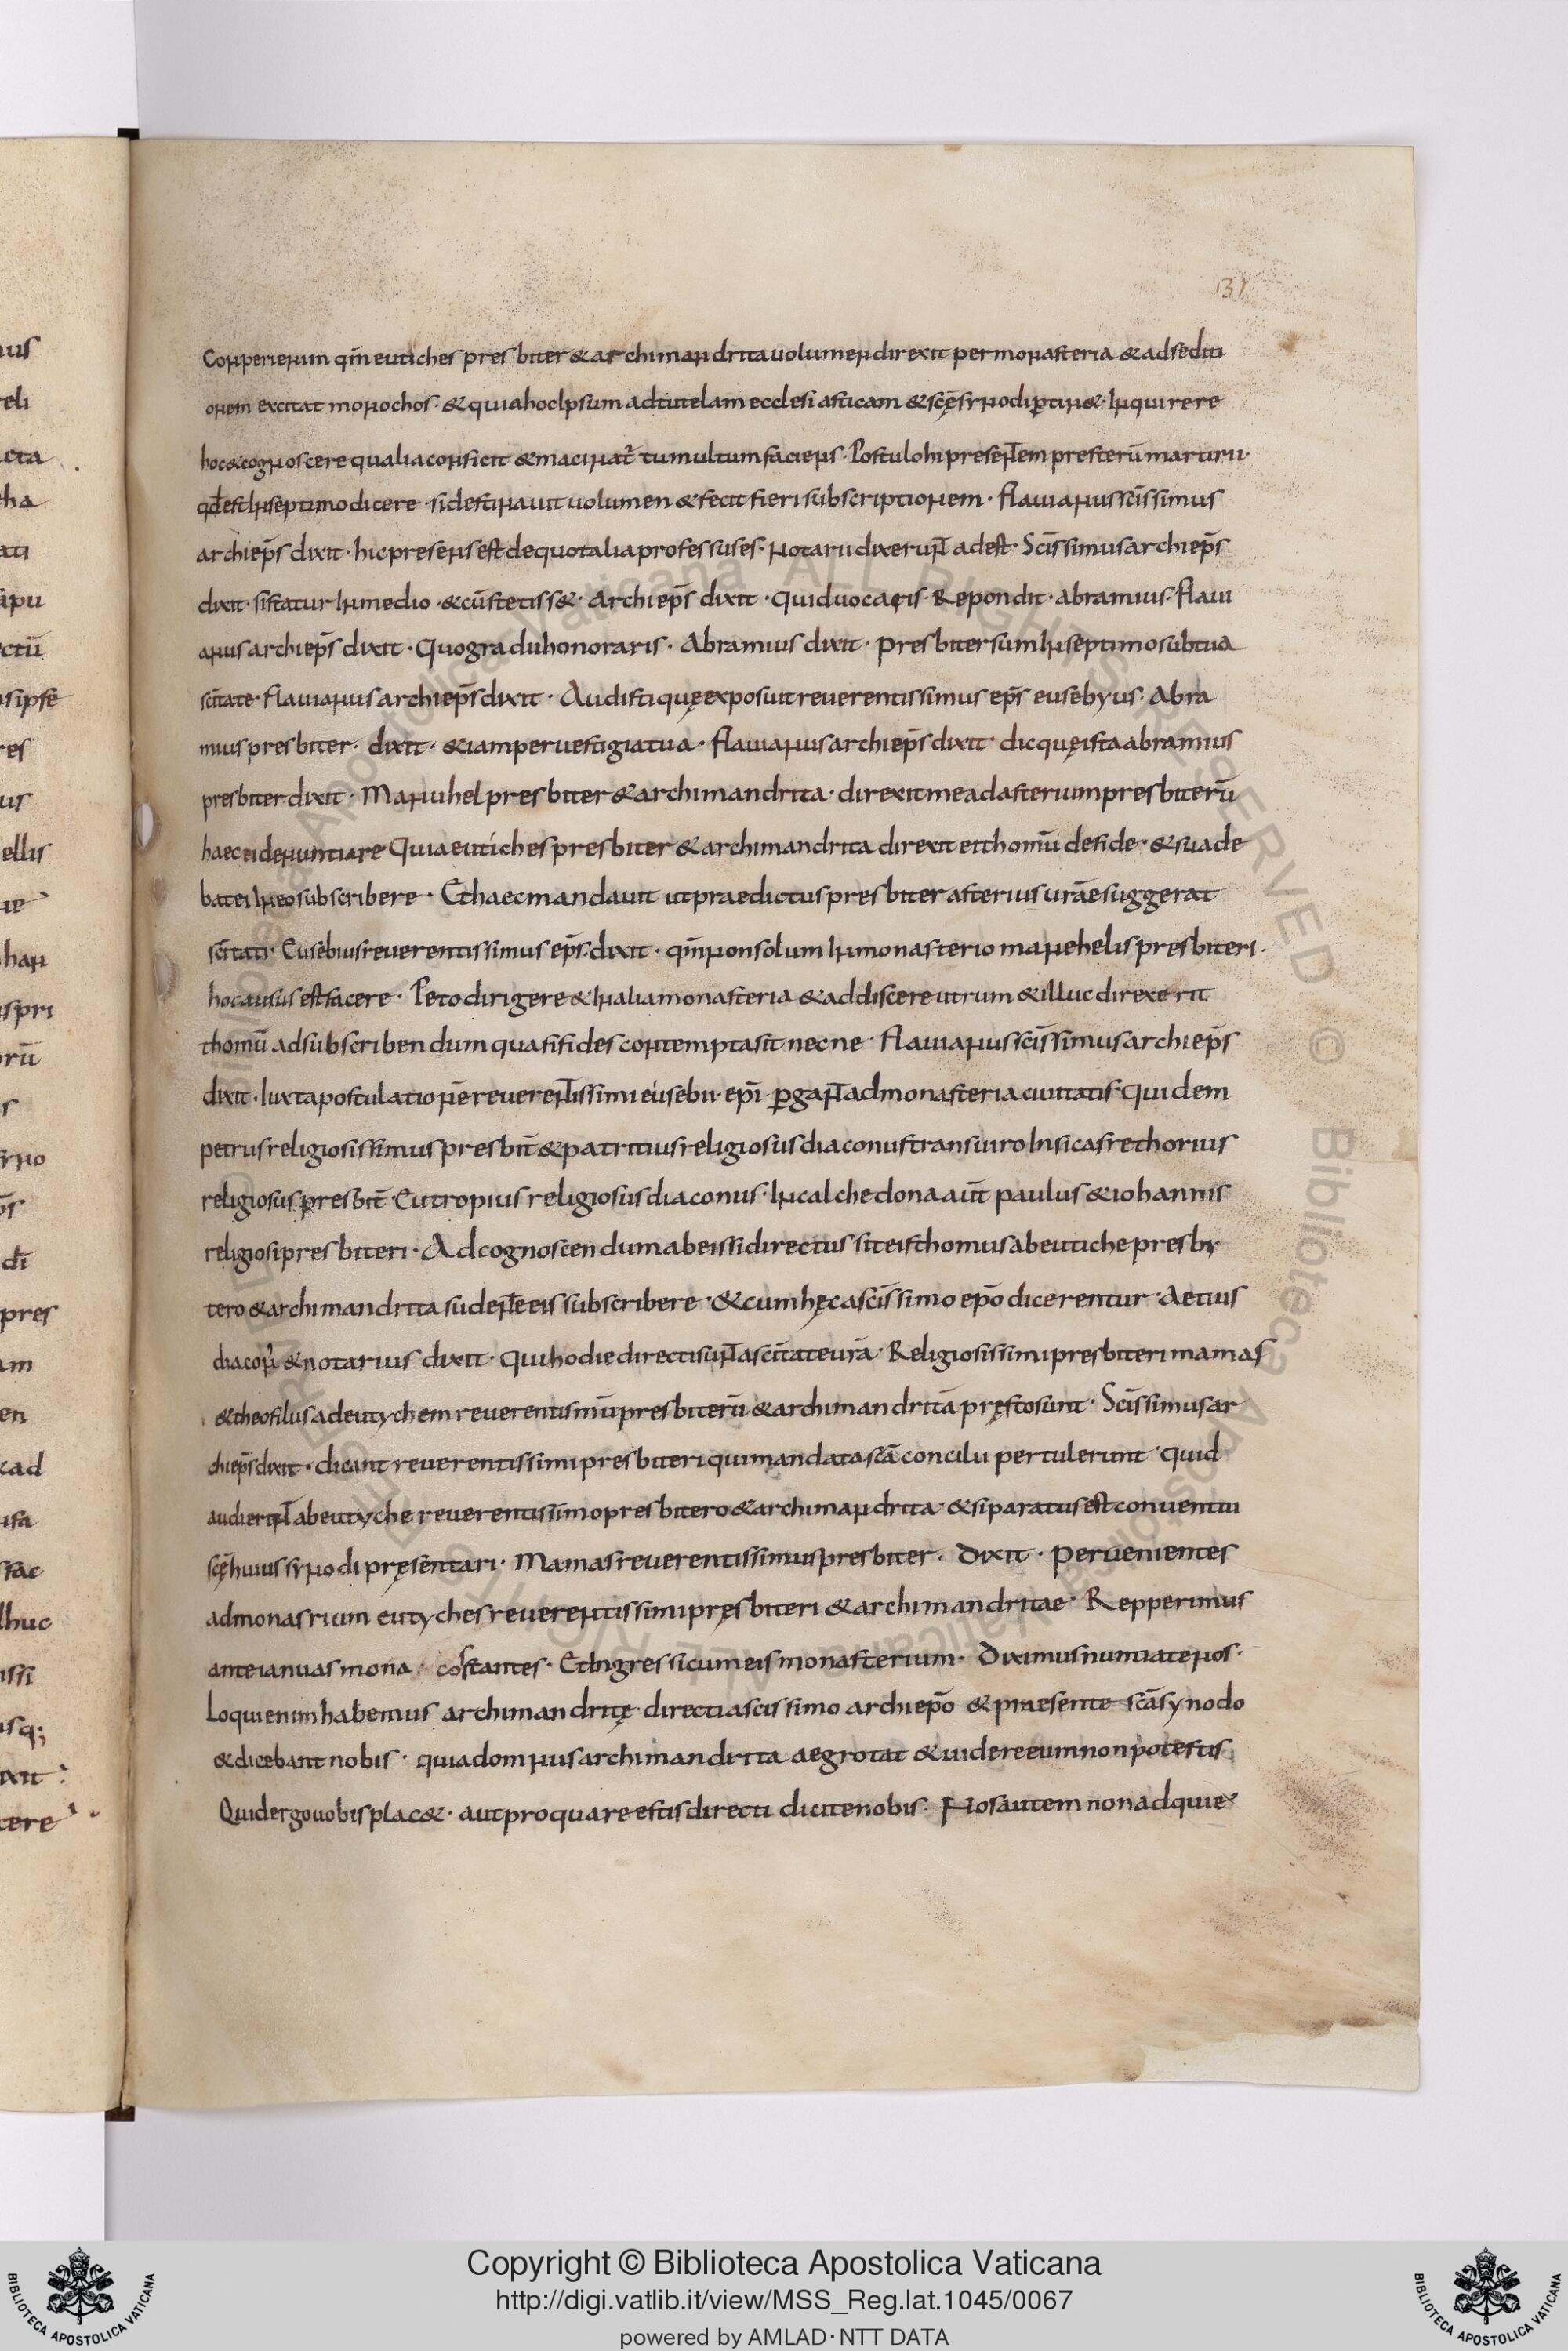 31
Conperierim qm̄ eutiches presbiter & archimandrita uolumen direxit per monasteria & ad sediti
onem excitat monochos · & quia hoc Ipsum ad tutelam ecclesiasticam & scęs synodi ꝑtin& · Inquirere
hoc & cognoscere qualia conficit & macinat̄ tumultum faciens · Postulo hi presentem presterū martirii ·
qđ est In septimo dicere · si destinauit uolumen & fecit fieri subscriptionem · flauianus scīssimus
archiep̄s dixit · hic presens est de quo talia professus es · notarii dixerunt adest · Scīssimus archiep̄s
dixit · sistatur In medio · & cū stetiss& · Archiep̄s dixit · Quid uocaris · Repondit · abramius · flaui
anus archiep̄s dixit · Quo gradu honoraris · Abramius dixit · presbiter sum In septimo sub tua
scītate · flauianus archiep̄s dixit · Audisti quę exposuit reuerentissimus ep̄s eusebyus · Abra
mius presbiter · dixit · & iam per uestigia tua · flauianus archiep̄s dixit · dic quę ista abramius
presbiter dixit · Manuhel presbiter & archimandrita · direxit me ad asterium presbiterū
haec ei denuntiare Quia eutiches presbiter & archimandrita direxit ei thomū de fide · & suade
bat ei In eo subscribere · Et haec mandauit ut praedictus presbiter asterius urāe suggerat
scītati · Eusebius reuerentissimus ep̄s · dixit · qm̄ non solum In monasterio manehelis presbiteri ·
hoc ausus est facere · Peto dirigere & In alia monasteria & addiscere utrum & illuc direxerit
thomū ad subscribendum quasi fides contempta sit necne · flauianus scīssimus archiep̄s
dixit · Iuxta postulationē reuerentissimi eusebii · ep̄i · ꝑgant ad monasteria ciuitatis Quidem
petrus religiosissimus presbit̄ & patritius religiosus diaconus trans uiro In sicas rethorius
religiosus presbit̄ · Eutropius religiosus diaconus · In calchedona aūt paulus & iohannis
religiosi presbiteri · Ad cognoscendum ab eis si directus sit eis thomus ab eutiche presby
tero & archimandrita sudente eis subscribere · & cum hęc a scīssimo ep̄o dicerentur · Aetius
diacon̄ & notarius dixit · Qui hodie directi sunt a scītate urā · Religiosissimi presbiteri mamas
& theofilus ad eutychem reuerentismū presbiterū & archimandritā pręsto sunt · Scīssimus ar
chiep̄s dixit · dicant reuerentissimi presbiteri qui mandata scā concilii pertulerunt · quid
audierunt ab eutyche reuerentissimo presbitero & archimandrita · & si paratus est conuentui
scę huius synodi pręsentari · Mamas reuerentissimus presbiter · Dixit · peruenientes
ad monasrium eutyches reuerentissimi pręsbiteri & archimandritae · Repperimus
ante ianuas mona · cos stantes · Et Ingressi cum eis monasterium · Diximus nuntiate nos ·
Loqui enim habemus archimandritę directi a scissimo archiep̄o & praesente scā synodo
& dicebant nobis · quia domnus archimandrita aegrotat & uidere eum non potestis
Quid ergo uobis plac& · aut pro quare estis directi dicite nobis · Nos autem non adquie
Copyright © Biblioteca Apostolica Vaticana
http://digi.vatlib.it/view/MSS_Reg.lat.1045/0067
powered by AMLAD·NTT DATA